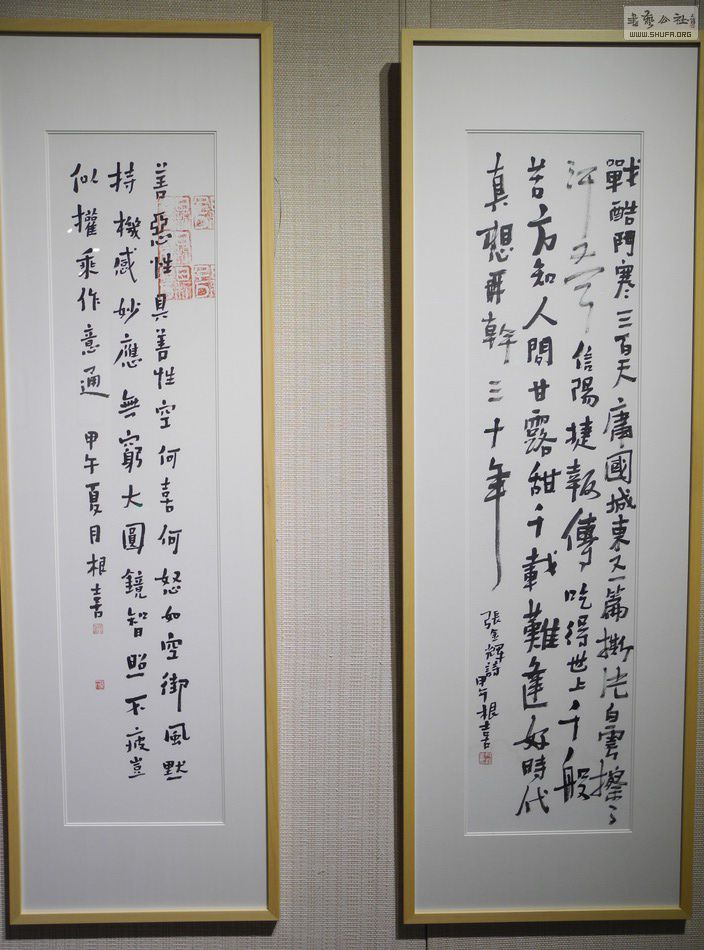 書藝公社
WWW.SHUFA.ORG
戰酷鬥寒三百天庸國城東又一篇撕片白雲擦了
汗又信陽捷報傳吃得世上千般
苦方知人間甘露甜千載難逢好時代
真想再幹三十年
張金輝詩
甲午根喜
善惡性具善性空何喜何怒如空御風默
持機感妙應無窮大圓鏡智照不疲豈
似權乘作意通
甲午夏月根喜